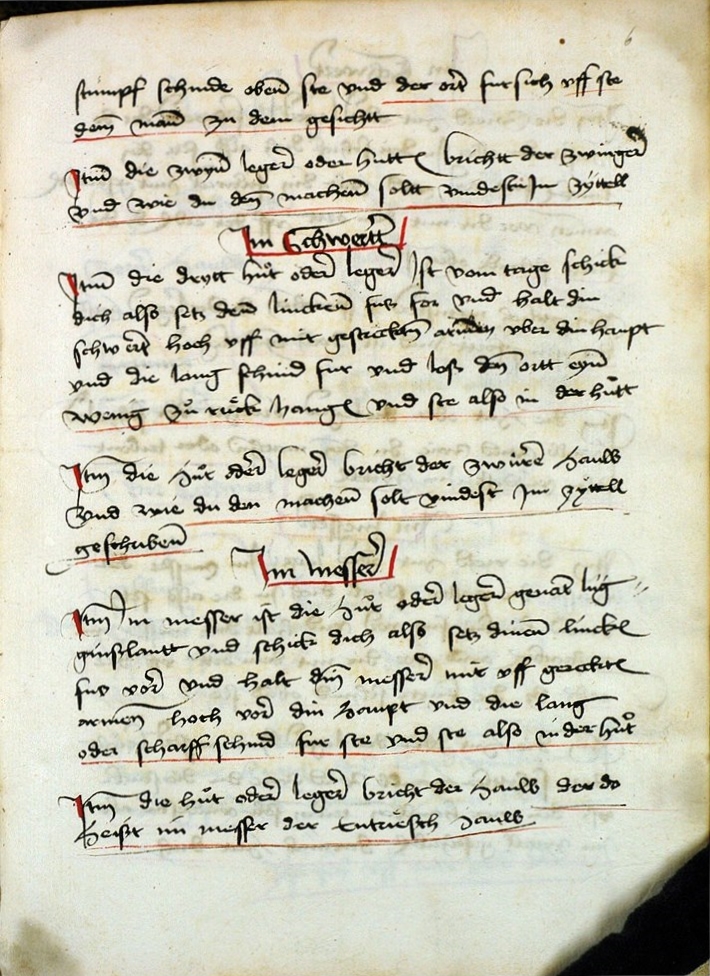 6
stumpf schnide oben ste vnd der ort fur sich vff ste
dem man zu dem gesichtt
Itm die zwyn leger oder hutt bricht der zwinger
vnd wie du den machen soltt vindestu Im zyttell
Im Schwertt
Itm die drytt hut oder leger Ist vom tage schick
dich also setz den lincken fus for vnd halt din
schwert hoch vff mit gestrecktn armen vber din haupt
vnd die lang schnid fur vnd loß den ortt eyn
wenig zu ruck hang vnd ste also in der hutt
Itm die Hut oder leger bricht der zwire Hauw
vnd wie du den machen solt vindest Im zyttell
geschriben
Im messer
Itm Im messer ist die Hut oder leger genant lug
ginslantt vnd schick dich also setz dinen linck
fus vor vnd halt din messer mit vff gerecktē
armen hoch vor din Haupt vnd die lang
oder scharff schnid fur ste vnd ste also in der hut
Itm die hut oder leger bricht der Hauw der do
Heist im messer der Entriesch Hauw